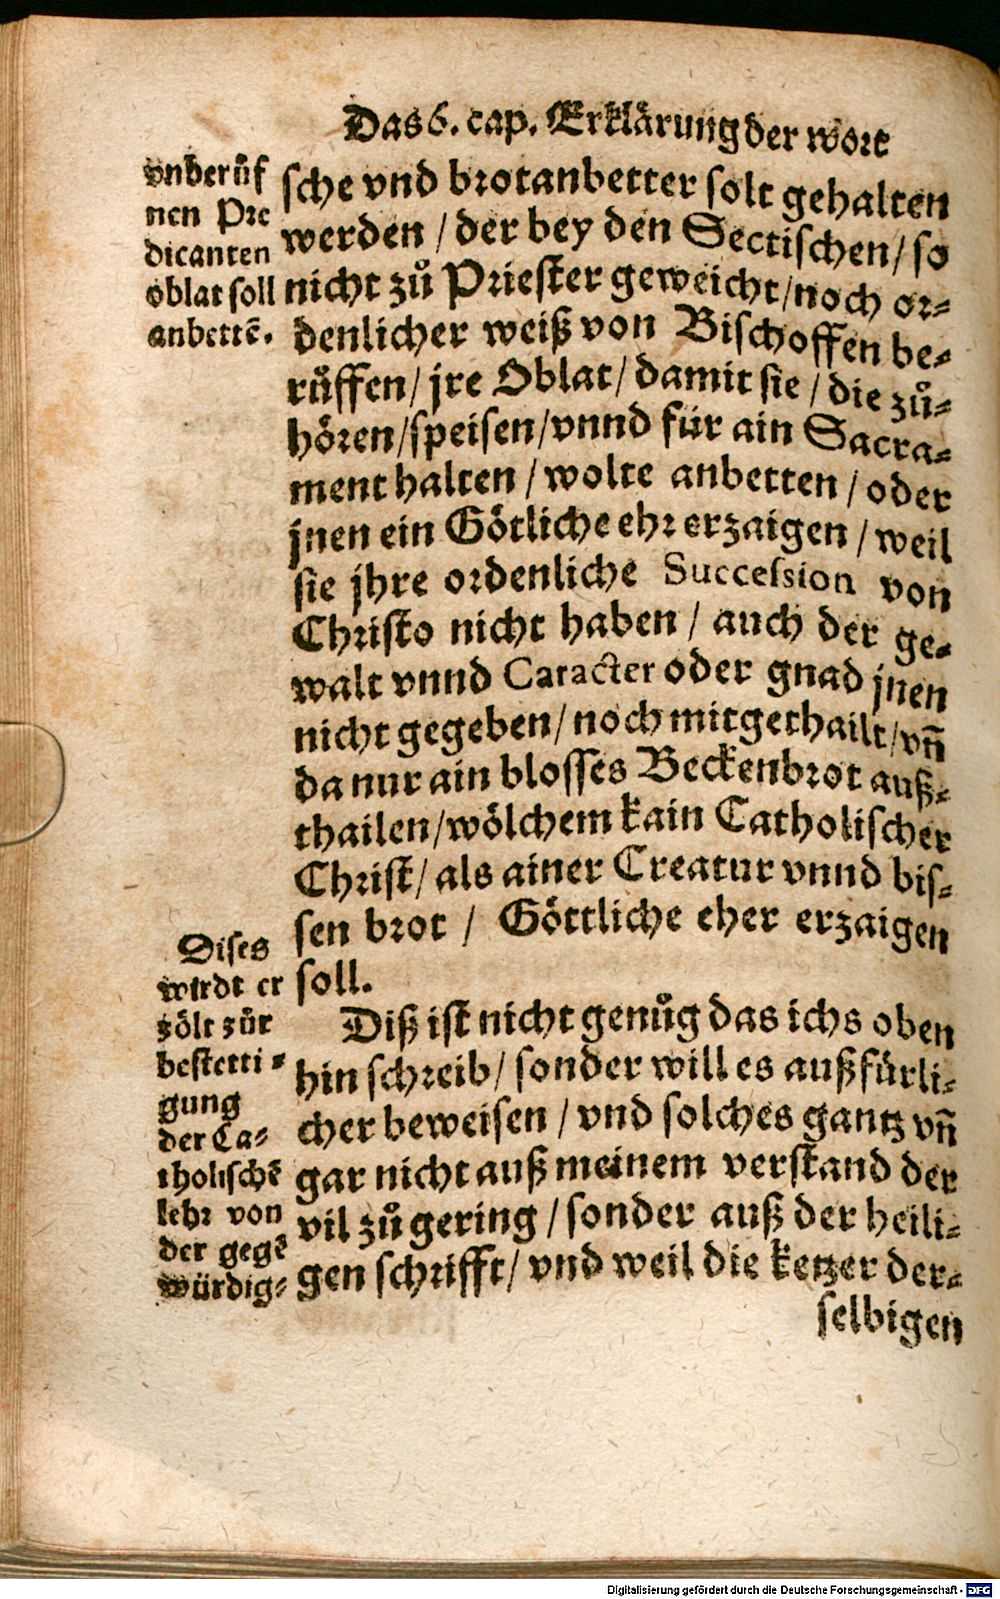 Das 6. cap. Erklärung der wort
vnberůf
nen Pre
dicanten
oblat soll
anbettē.
sche vnd brotanbetter solt gehalten
werden / der bey den Sectischen / so
nicht zů Priester geweicht / noch or-
denlicher weiß von Bischoffen be-
růffen / jre Oblat / damit sie / die zů-
hören / speisen / vnnd für ain Sacra-
ment halten / wolte anbetten / oder
jnen ein Götliche ehr erzaigen / weil
sie jhre ordenliche Succession von
Christo nicht haben / auch der ge-
walt vnnd Caracter oder gnad jnen
nicht gegeben / noch mitgethailt / vñ
da nur ain blosses Beckenbrot auß-
thailen / wölchem kain Catholischer
Christ / als ainer Creatur vnnd bis-
sen brot / Göttliche eher erzaigen
soll.
Dises
wirdt er
zölt zůr
bestetti-
gung
der Ca-
tholischē
lehr von
der gegē
würdig-
Diß ist nicht genůg das ichs oben
hin schreib / sonder will es außfürli-
cher beweisen / vnd solches gantz vñ
gar nicht auß meinem verstand der
vil zů gering / sonder auß der heili-
gen schrifft / vnd weil die ketzer der-
selbigen
Digitalisierung gefördert durch die Deutsche Forschungsgemeinschaft - DFG